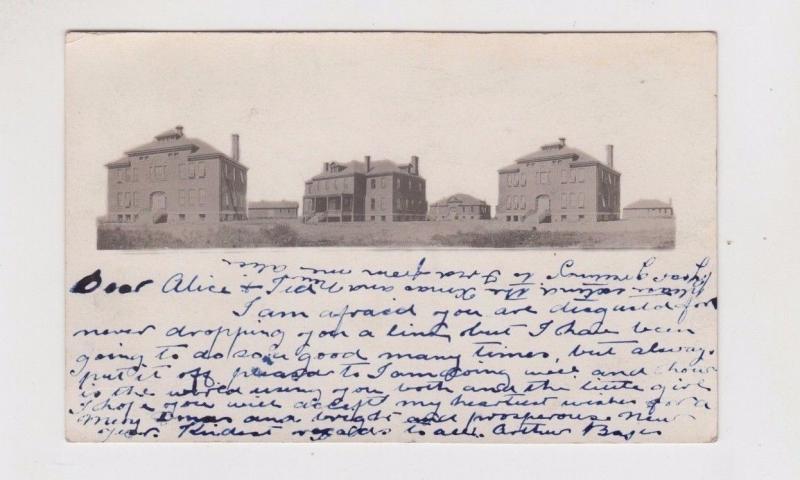 Dear Alice & Ted
I am afraid you are disgusted for
never dropping you a line but I have been
going to do so a good many times, but always
put it off pleased to I am going well and how
is the world using you both and the little girl
I hope you will accept my heartiest wishes for a
Merry Xmas and bright and prosperous New
Year. Kindest regards to all. Arthur
Xmas and New Year